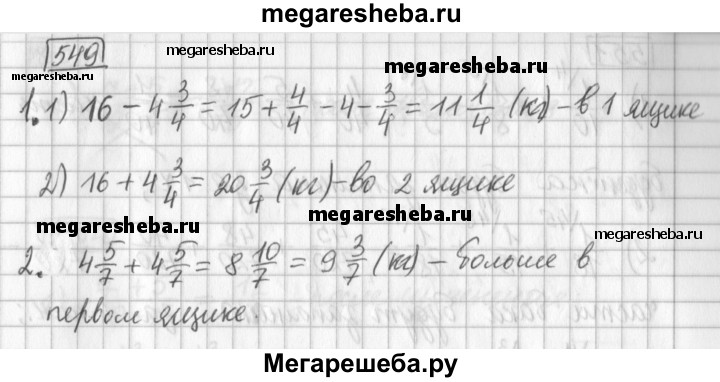 megaresheba.ru
549
megaresheba.ru
megaresheba.ru
megaresheba.ru
1. 1) 16 - 4 3/4 = 15 + 4/4 - 4 - 3/4 = 11 1/4 (кг) - в 1 ящике
2) 16 + 4 3/4 = 20 3/4 (кг) - во 2 ящике
megaresheba.ru
megaresheba.ru
megaresheba.ru
2. 4 5/7 + 4 5/7 = 8 10/7 = 9 3/7 (кг) - больше в
первом ящике.
Мегарешеба.ру